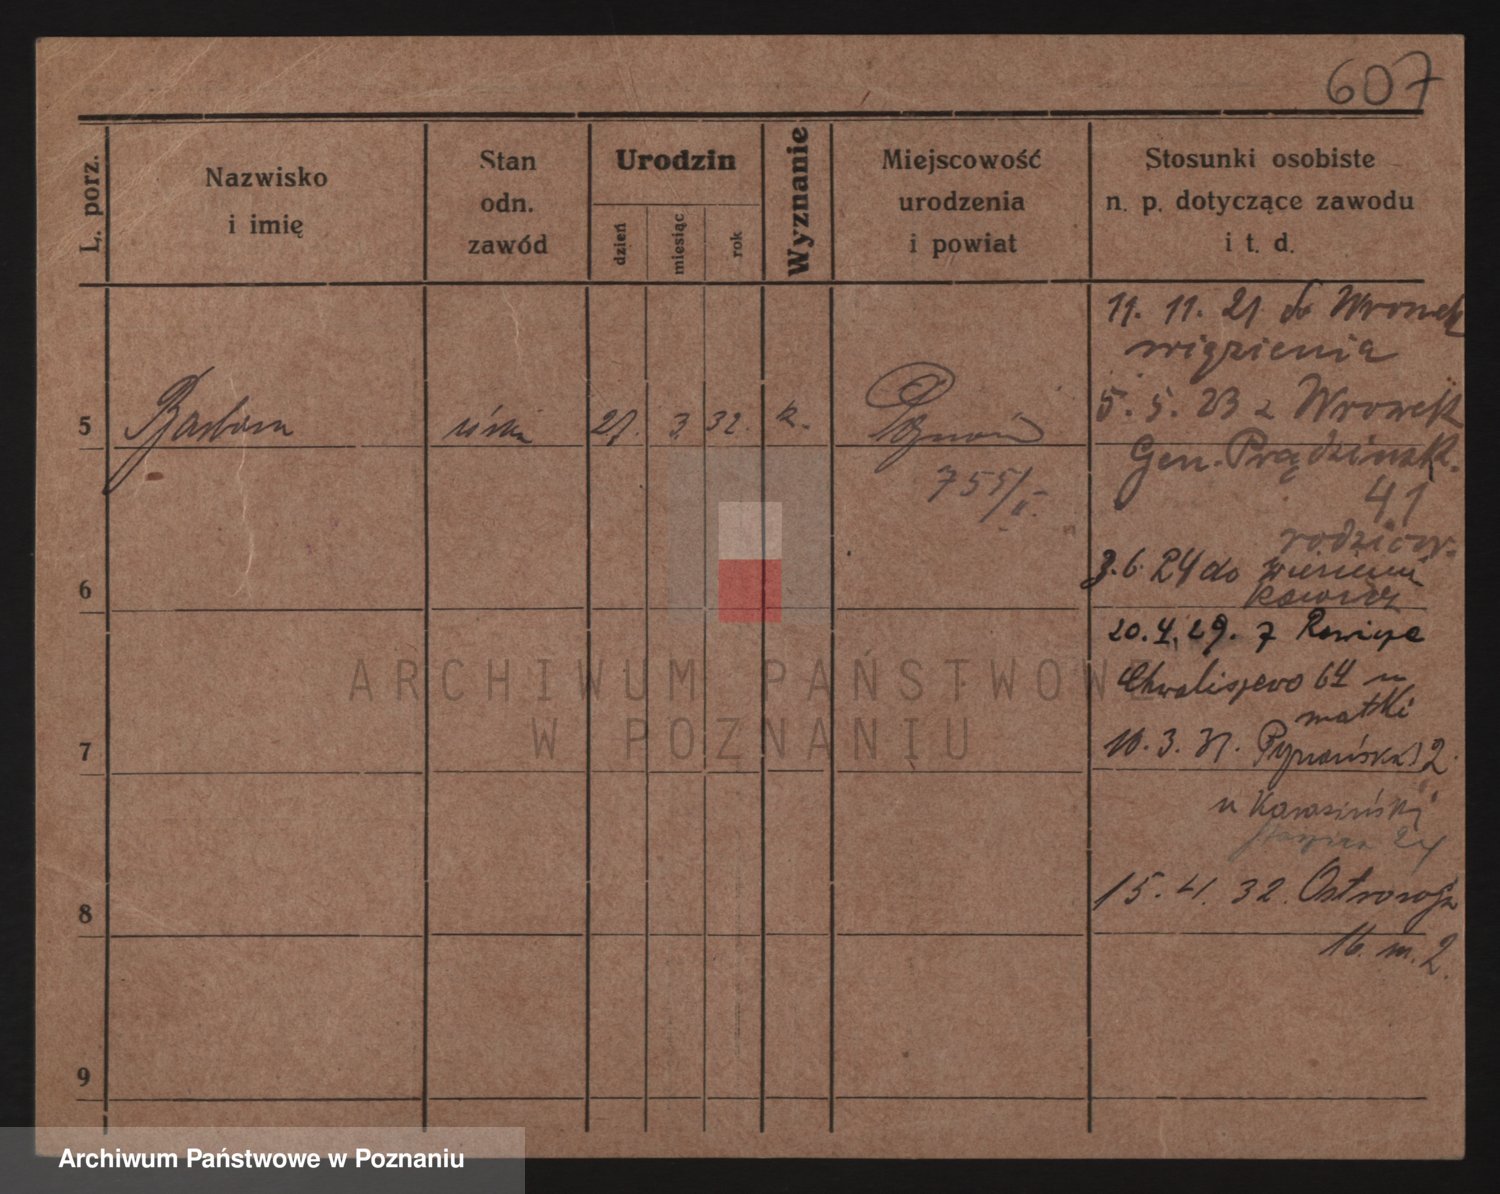 607
L. porz.
Nazwisko
i imię
Stan
odn.
zawód
Urodzin
dzień
miesiąc
rok
Wyznanie
Miejscowość
urodzenia
i powiat
Stosunki osobiste
n. p. dotyczące zawodu
i t. d.
11. 11. 21 do Wronek
więzienia
5. 5. 23 z Wronek
Gen. Prądzińsk.
41
rodziców.
5
Barbara
27. 3. 32. k.
Poznań
755/II.
6
3.6.24 do
20.4.29. z Rawicza
Chwaliszewo 64 u
matki
7
10.3.31.
2.
u Karasiński
24
8
15. 4. 32. Ostroroga
16. m. 2.
9
ARCHIWUM PAŃSTWOWE
W POZNANIU
Archiwum Państwowe w Poznaniu